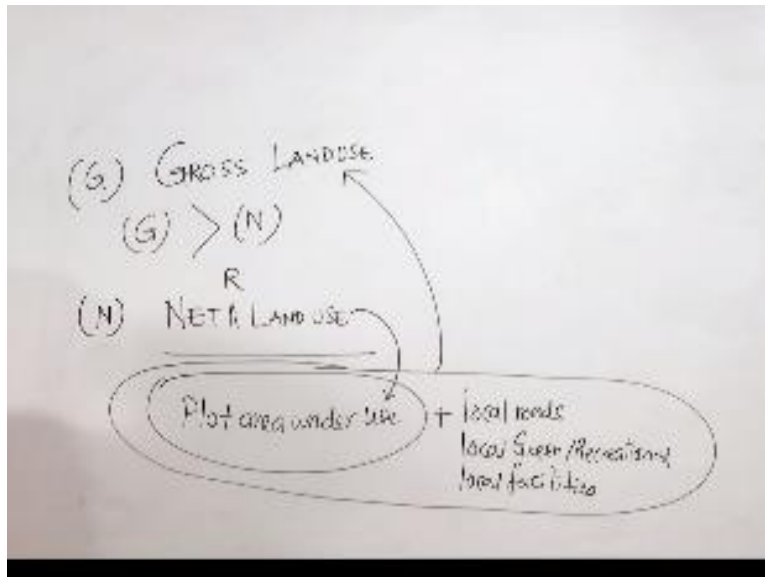 (G) GROSS LANDUSE
(G) > (N)
R
(N) NET R LAND USE
Plot area under use + local roads
local Green/Recreational
local facilities